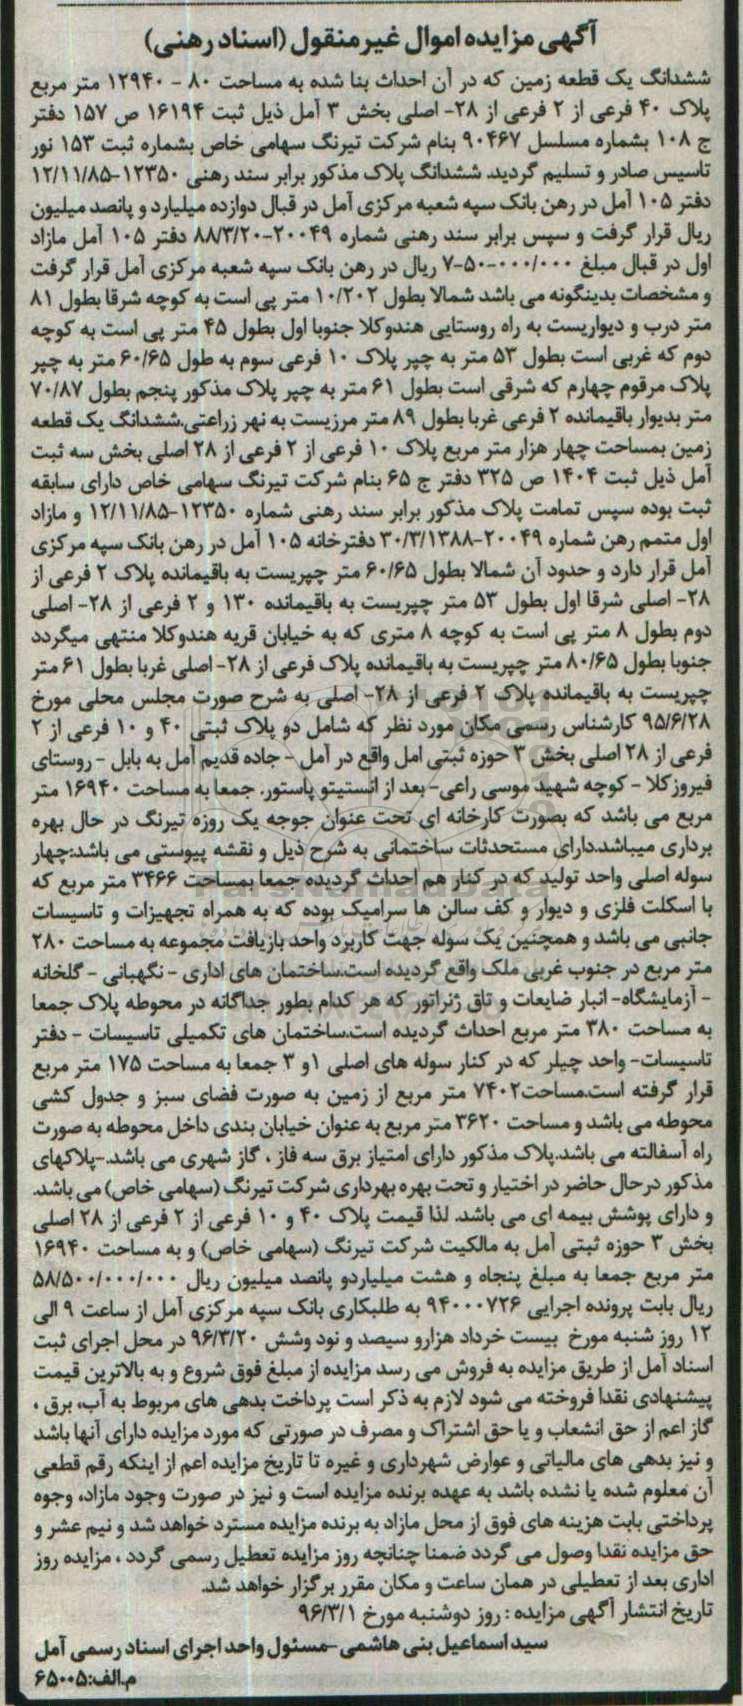 آگهی مزایده اموال غیرمنقول (اسناد رهنی)
ششدانگ یک قطعه زمین که در آن احداث بنا شده به مساحت ۸۰ - ۱۲۹۴۰ متر مربع
پلاک ۴۰ فرعی از ۲ فرعی از ۲۸- اصلی بخش ۳ آمل ذیل ثبت ۱۶۱۹۴ ص ۱۵۷ دفتر
ج ۱۰۸ بشماره مسلسل ۹۰۴۶۷ بنام شرکت تیرنگ سهامی خاص بشماره ثبت ۱۵۳ نور
تاسیس صادر و تسلیم گردید. ششدانگ پلاک مذکور برابر سند رهنی ۱۲۳۵۰-۱۲/۱۱/۸۵
دفتر ۱۰۵ آمل در رهن بانک سپه شعبه مرکزی آمل در قبال دوازده میلیارد و پانصد میلیون
ریال قرار گرفت و سپس برابر سند رهنی شماره ۲۰۰۴۹-۸۸/۳/۲۰ دفتر ۱۰۵ آمل مازاد
اول در قبال مبلغ ۰۰۰/۰۰۰-۵۰-۷ ریال در رهن بانک سپه شعبه مرکزی آمل قرار گرفت
و مشخصات بدینگونه می باشد شمالا بطول ۱۰/۲۰۲ متر پی است به کوچه شرقا بطول ۸۱
متر درب و دیواریست به راه روستایی هندوکلا جنوبا اول بطول ۴۵ متر پی است به کوچه
دوم که غربی است بطول ۵۳ متر به چپر پلاک ۱۰ فرعی سوم به طول ۶۰/۶۵ متر به چپر
پلاک مرقوم چهارم که شرقی است بطول ۶۱ متر به چپر پلاک مذکور پنجم بطول ۷۰/۸۷
متر بدیوار باقیمانده ۲ فرعی غربا بطول ۸۹ متر مرزیست به نهر زراعتی.ششدانگ یک قطعه
زمین بمساحت چهار هزار متر مربع پلاک ۱۰ فرعی از ۲ فرعی از ۲۸ اصلی بخش سه ثبت
آمل ذیل ثبت ۱۴۰۴ ص ۳۲۵ دفتر ج ۶۵ بنام شرکت تیرنگ سهامی خاص دارای سابقه
ثبت بوده سپس تمامت پلاک مذکور برابر سند رهنی شماره ۱۲۳۵۰-۱۲/۱۱/۸۵ و مازاد
اول متمم رهن شماره ۲۰۰۴۹-۳۰/۳/۱۳۸۸ دفترخانه ۱۰۵ آمل در رهن بانک سپه مرکزی
آمل قرار دارد و حدود آن شمالا بطول ۶۰/۶۵ متر چپریست به باقیمانده پلاک ۲ فرعی از
۲۸- اصلی شرقا اول بطول ۵۳ متر چپریست به باقیمانده ۱۳۰ و ۲ فرعی از ۲۸- اصلی
دوم بطول ۸ متر پی است به کوچه ۸ متری که به خیابان قریه هندوکلا منتهی میگردد
جنوبا بطول ۸۰/۶۵ متر چپریست به باقیمانده پلاک فرعی از ۲۸- اصلی غربا بطول ۶۱ متر
چپریست به باقیمانده پلاک ۲ فرعی از ۲۸- اصلی به شرح صورت مجلس محلی مورخ
۹۵/۶/۲۸ کارشناس رسمی مکان مورد نظر که شامل دو پلاک ثبتی ۴۰ و ۱۰ فرعی از ۲
فرعی از ۲۸ اصلی بخش ۳ حوزه ثبتی امل واقع در آمل - جاده قدیم آمل به بابل - روستای
فیروزکلا - کوچه شهید موسی راعی- بعد از انستیتو پاستور. جمعا به مساحت ۱۶۹۴۰ متر
مربع می باشد که بصورت کارخانه ای تحت عنوان جوجه یک روزه تیرنگ در حال بهره
برداری میباشد.دارای مستحدثات ساختمانی به شرح ذیل و نقشه پیوستی می باشد:چهار
سوله اصلی واحد تولید که در کنار هم احداث گردیده جمعا بمساحت ۳۴۶۶ متر مربع که
با اسکلت فلزی و دیوار و کف سالن ها سرامیک بوده که به همراه تجهیزات و تاسیسات
جانبی می باشد و همچنین یک سوله جهت کاربرد واحد بازیافت مجموعه به مساحت ۲۸۰
متر مربع در جنوب غربی ملک واقع گردیده است.ساختمان های اداری - نگهبانی - گلخانه
- آزمایشگاه- انبار ضایعات و تاق ژنراتور که هر کدام بطور جداگانه در محوطه پلاک جمعا
به مساحت ۳۸۰ متر مربع احداث گردیده است.ساختمان های تکمیلی تاسیسات - دفتر
تاسیسات- واحد چیلر که در کنار سوله های اصلی ۱و ۳ جمعا به مساحت ۱۷۵ متر مربع
قرار گرفته است.مساحت۷۴۰۲ متر مربع از زمین به صورت فضای سبز و جدول کشی
محوطه می باشد و مساحت ۳۶۲۰ متر مربع به عنوان خیابان بندی داخل محوطه به صورت
راه آسفالته می باشد.پلاک مذکور دارای امتیاز برق سه فاز ، گاز شهری می باشد.-پلاکهای
مذکور درحال حاضر در اختیار و تحت بهره بهرداری شرکت تیرنگ (سهامی خاص) می باشد.
و دارای پوشش بیمه ای می باشد. لذا قیمت پلاک ۴۰ و ۱۰ فرعی از ۲ فرعی از ۲۸ اصلی
بخش ۳ حوزه ثبتی آمل به مالکیت شرکت تیرنگ (سهامی خاص) و به مساحت ۱۶۹۴۰
متر مربع جمعا به مبلغ پنجاه و هشت میلیاردو پانصد میلیون ریال ۵۸/۵۰۰/۰۰۰/۰۰۰
ریال بابت پرونده اجرایی ۹۴۰۰۰۷۲۶ به طلبکاری بانک سپه مرکزی آمل از ساعت ۹ الی
۱۲ روز شنبه مورخ بیست خرداد هزارو سیصد و نود وشش ۹۶/۳/۲۰ در محل اجرای ثبت
اسناد آمل از طریق مزایده به فروش می رسد مزایده از مبلغ فوق شروع و به بالاترین قیمت
پیشنهادی نقدا فروخته می شود لازم به ذکر است پرداخت بدهی های مربوط به آب، برق ،
گاز اعم از حق انشعاب و یا حق اشتراک و مصرف در صورتی که مورد مزایده دارای آنها باشد
و نیز بدهی های مالیاتی و عوارض شهرداری و غیره تا تاریخ مزایده اعم از اینکه رقم قطعی
آن معلوم شده یا نشده باشد به عهده برنده مزایده است و نیز در صورت وجود مازاد، وجوه
پرداختی بابت هزینه های فوق از محل مازاد به برنده مزایده مسترد خواهد شد و نیم عشر و
حق مزایده نقدا وصول می گردد ضمنا چنانچه روز مزایده تعطیل رسمی گردد ، مزایده روز
اداری بعد از تعطیلی در همان ساعت و مکان مقرر برگزار خواهد شد.
تاریخ انتشار آگهی مزایده : روز دوشنبه مورخ ۹۶/۳/۱
سید اسماعیل بنی هاشمی -مسئول واحد اجرای اسناد رسمی آمل
م.الف:۶۵۰۰۵